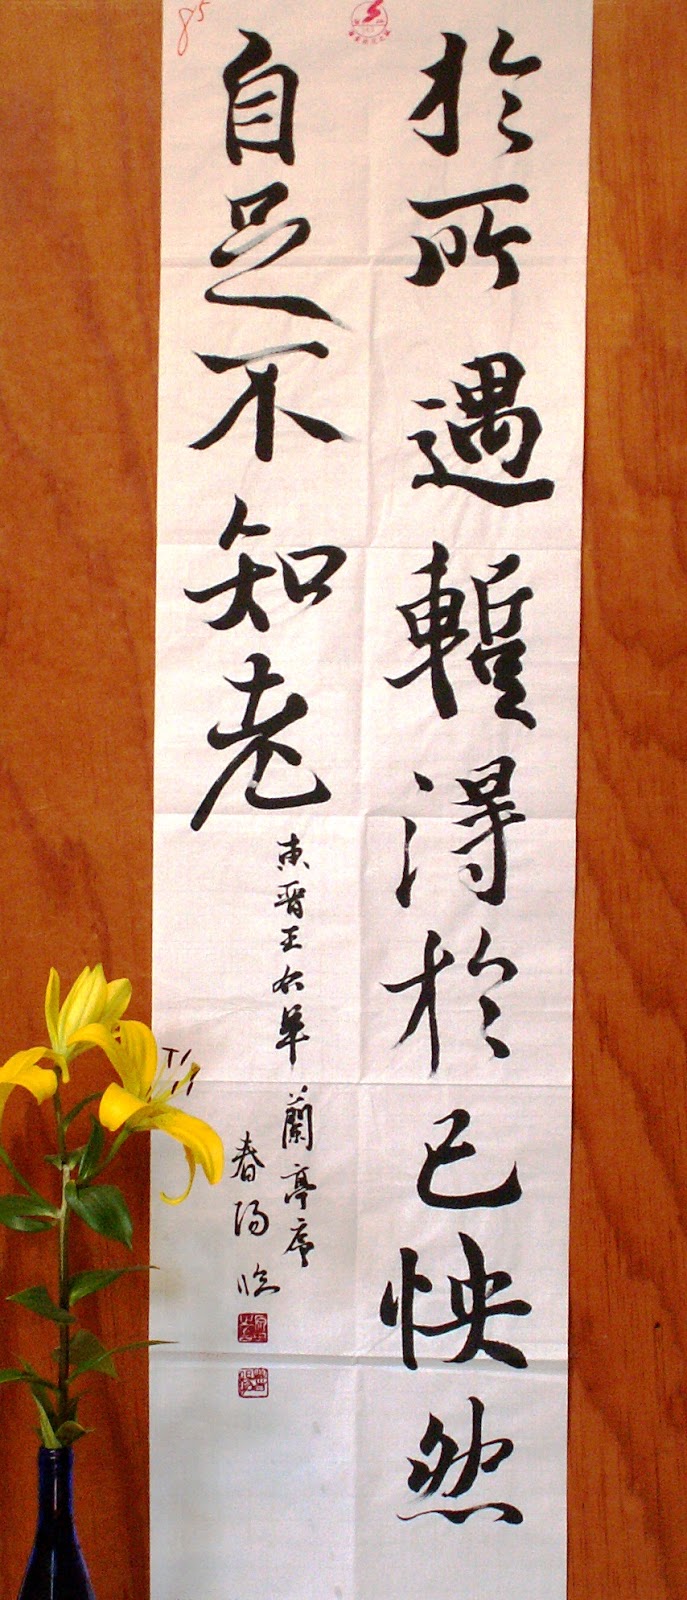 於所遇暫得於己怏然
自足不知老
東晉王右軍蘭亭序
春陽臨
85